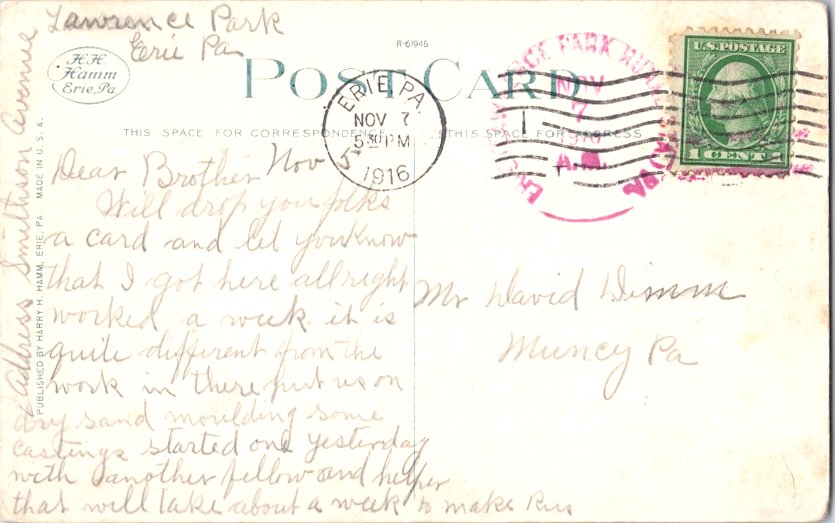 Lawrence Park
Erie Pa
Address Smithson Avenue
H.H.
Hamm
Erie, Pa.
R-61945
POST CARD
THIS SPACE FOR CORRESPONDENCE
THIS SPACE FOR ADDRESS
PUBLISHED BY HARRY H. HAMM, ERIE, PA. MADE IN U.S.A.
ERIE, PA.
NOV 7
5 30 PM
1916
PARK
NOV
7
A.M.
PA
U.S. POSTAGE
1 CENT 1
Nov 5
Dear Brother
Will drop you folks
a card and let you know
that I got here allright
worked a week it is
quite different from the
work in there put us on
dry sand moulding some
castings started one yesterday
with another fellow and helper
that will take about a week to make
Mr David Dimm
Muncy Pa